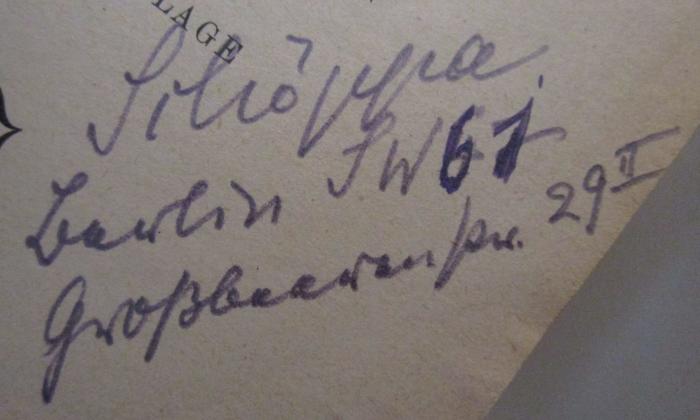 LAGE
Schöppa
Berlin SW 61
Großbeerenstr. 29 II